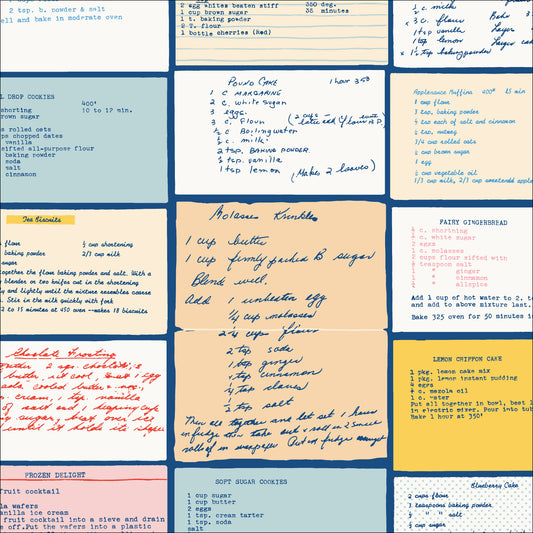 2 tsp. b. powder & salt
ell and bake in moderate oven
2 egg whites beaten stiff 350 deg.
1 cup brown sugar 35 minutes
1 t. baking powder
2 T. flour
1 bottle cherries (Red)
½ c. milk
3 c. flour Bake
1 tsp vanilla Layer
1 tsp lemon Layer cak
1½ tsp baking powder
L DROP COOKIES
400°
shorting 10 to 12 min.
rown sugar
s rolled oats
ps chopped dates
vanilla
sifted all-purpose flour
baking powder
soda
salt
cinnamon
POUND CAKE 1 hour 350
1 C MARGARINE
2 C. white sugar
3 eggs
3 C. Flour
½ c Boiling water
½ c. milk
2 tsp. BAKING POWDER.
½ tsp. vanilla
1 tsp lemon (Makes 2 loaves)
Applesauce Muffins 400° 25 min
2 cup flour
3 tsp. baking powder
½ tsp each of salt and cinnamon
½ tsp. nutmeg
3/4 cup rolled oats
½ cup brown sugar
1 egg
½ cup vegetable oil
1/3 cup milk, 2/3 sweetened apple
Tea Biscuits
flour ½ cup shortening
baking powder 2/3 cup milk
sugar
together the flour baking powder and salt. With a
y blender or two knifes cut in the shortening
y and lightly until the mixture resembles coarse
. Stir in the milk quickly with fork
2 to 15 minutes at 450 oven --makes 18 biscuits
Molasses Krinkles
1 cup butter
1 cup firmly packed B sugar
Blend well,
Add 1 unbeaten egg
¼ cup molasses
2¼ cups flour
2 tsp soda
1 tsp ginger
1 tsp cinnamon
½ tsp cloves
½ tsp salt
Mix all together and let set 1 hour
in fridge then take out & roll in
roll up in waxpaper Put in fridge
FAIRY GINGERBREAD
½ c. shortning
½ c. white sugar
2 eggs
1 c. molasses
2 cups flour sifted with
½ teaspoon salt
1 " ginger
1 " cinnamon
½ " allspice
Add 1 cup of hot water to 2, t
and add to above mixture last.
Bake 325 oven for 50 minutes i
Chocolate Frosting
butter, 2 sqs. chocolate,
butter, let cool, beat 1 egg
add, cooled butter
cream, 1 tsp. vanilla
of salt and, 1 heaping cup
sugar, beat over ice
until it holds its shape
LEMON CHIFFON CAKE
1 pkg. lemon cake mix
1 pkg. lemon instant pudding
4 eggs
½ c. mazola oil
1 c. water
Put all together in bowl, beat
in electric mixer. Pour into tub
Bake 1 hour at 350!
FROZEN DELIGHT
fruit cocktail
la wafers
anilla ice cream
fruit cocktail into a sieve and drain
off.Put the wafers into a plastic
SOFT SUGAR COOKIES
1 cup sugar
1 cup butter
2 eggs
1 tsp. cream tarter
1 tsp. soda
salt
Blueberry Cake
2 cups flour
2 teaspoons baking powder
½ " " salt
½ cup sugar